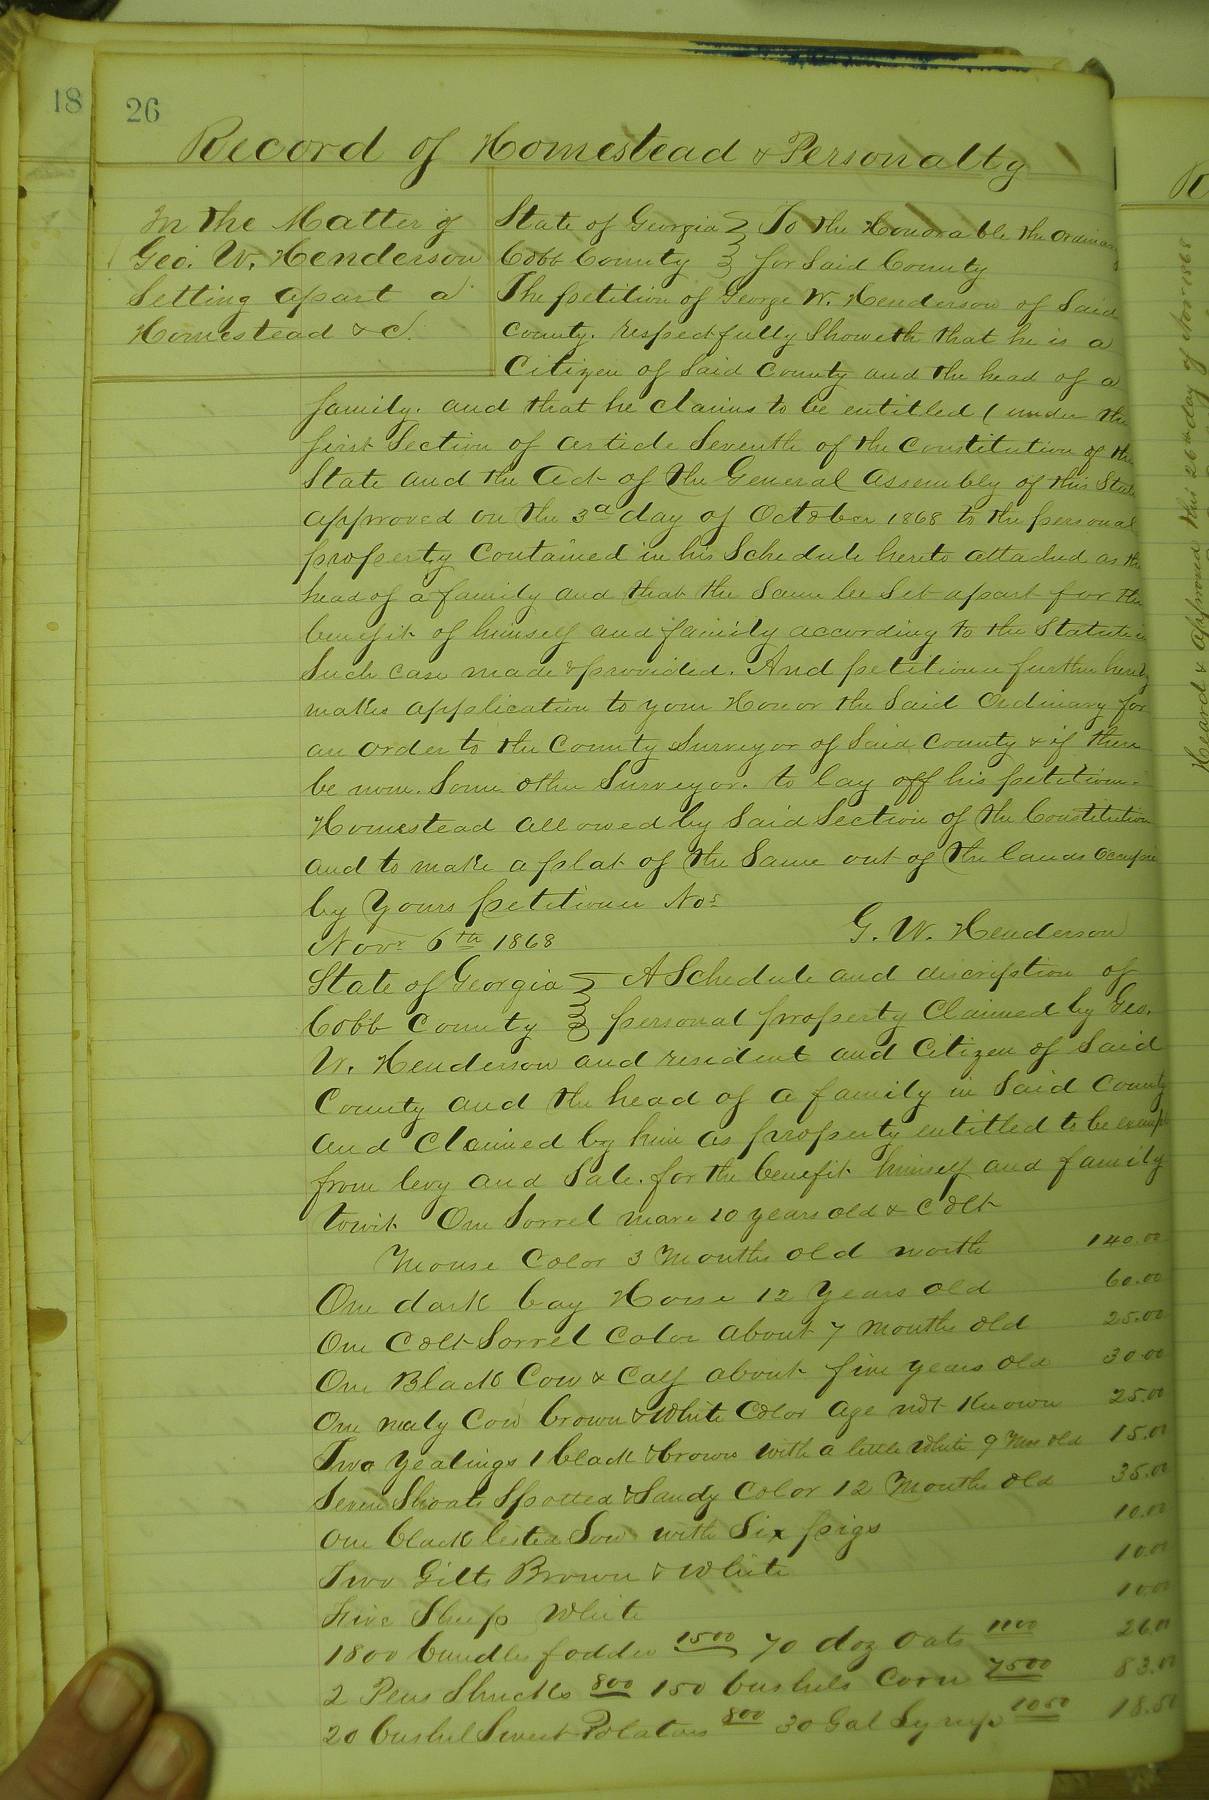 18
26
Record of Homestead & Personalty
In the Matter of
Geo. W. Henderson
Setting apart a
Homestead & c.
State of Georgia } To the Honorable the Ordinary
Cobb County } for Said County
The petition of George W. Henderson of Said
County. respectfully Showeth that he is a
Citizen of Said County and the head of a
family. and that he claims to be entitled (under the
first Section of article Seventh of the Constitution of the
State and the Act of the General Assembly of this State
approved on the 3d day of October 1868 to the personal
property Contained in his Schedule hereto attached as the
head of a family and that the Same be Set apart for the
benefit of himself and family according to the Statute in
Such case made & provided. And petitioner further hereby
makes application to your Honor the Said Ordinary for
an order to the County Surveyor of Said County & if there
be none. Some other Surveyor. to lay off his petitioner
Homestead allowed by Said Section of the Constitution
and to make a plat of the Same out of the lands
by Yours petitioner Nos
Novr 6th 1868 G. W. Henderson
State of Georgia } A Schedule and discription of
Cobb County } personal property Claimed by Geo.
W. Henderson and resident and Citizen of Said
County and the head of a family in Said County
and Claimed by him as property entitled to be exempt
from levy and Sale. for the benefit himself and family
towit One Sorrel mare 10 years old & Colt
Mouse Color 3 Months old worth 140.00
One dark bay Horse 12 Years old 60.00
One Colt Sorrel Color about 7 Months old 25.00
One Black Cow & Calf about five years old 30.00
One muly Cow brown & White Color age not Known 25.00
Two Yealings 1 black & brown with a little White 9 Mos old 15.00
Seven Shoats Spotted & Sandy Color 12 Months old 35.00
One black listed Sow with Six pigs 10.00
Two Gilts Brown & White 10.00
Five Sheep White 10.00
1800 bundles fodder 1500 70 doz Oats 1100 26.00
2 Pens Shucks 800 150 bushels Corn 7500 83.00
20 bushel Sweet Potatoes 800 30 Gal Syrup 1050 18.50
Heard & Approved this 26th day of Nov 1868